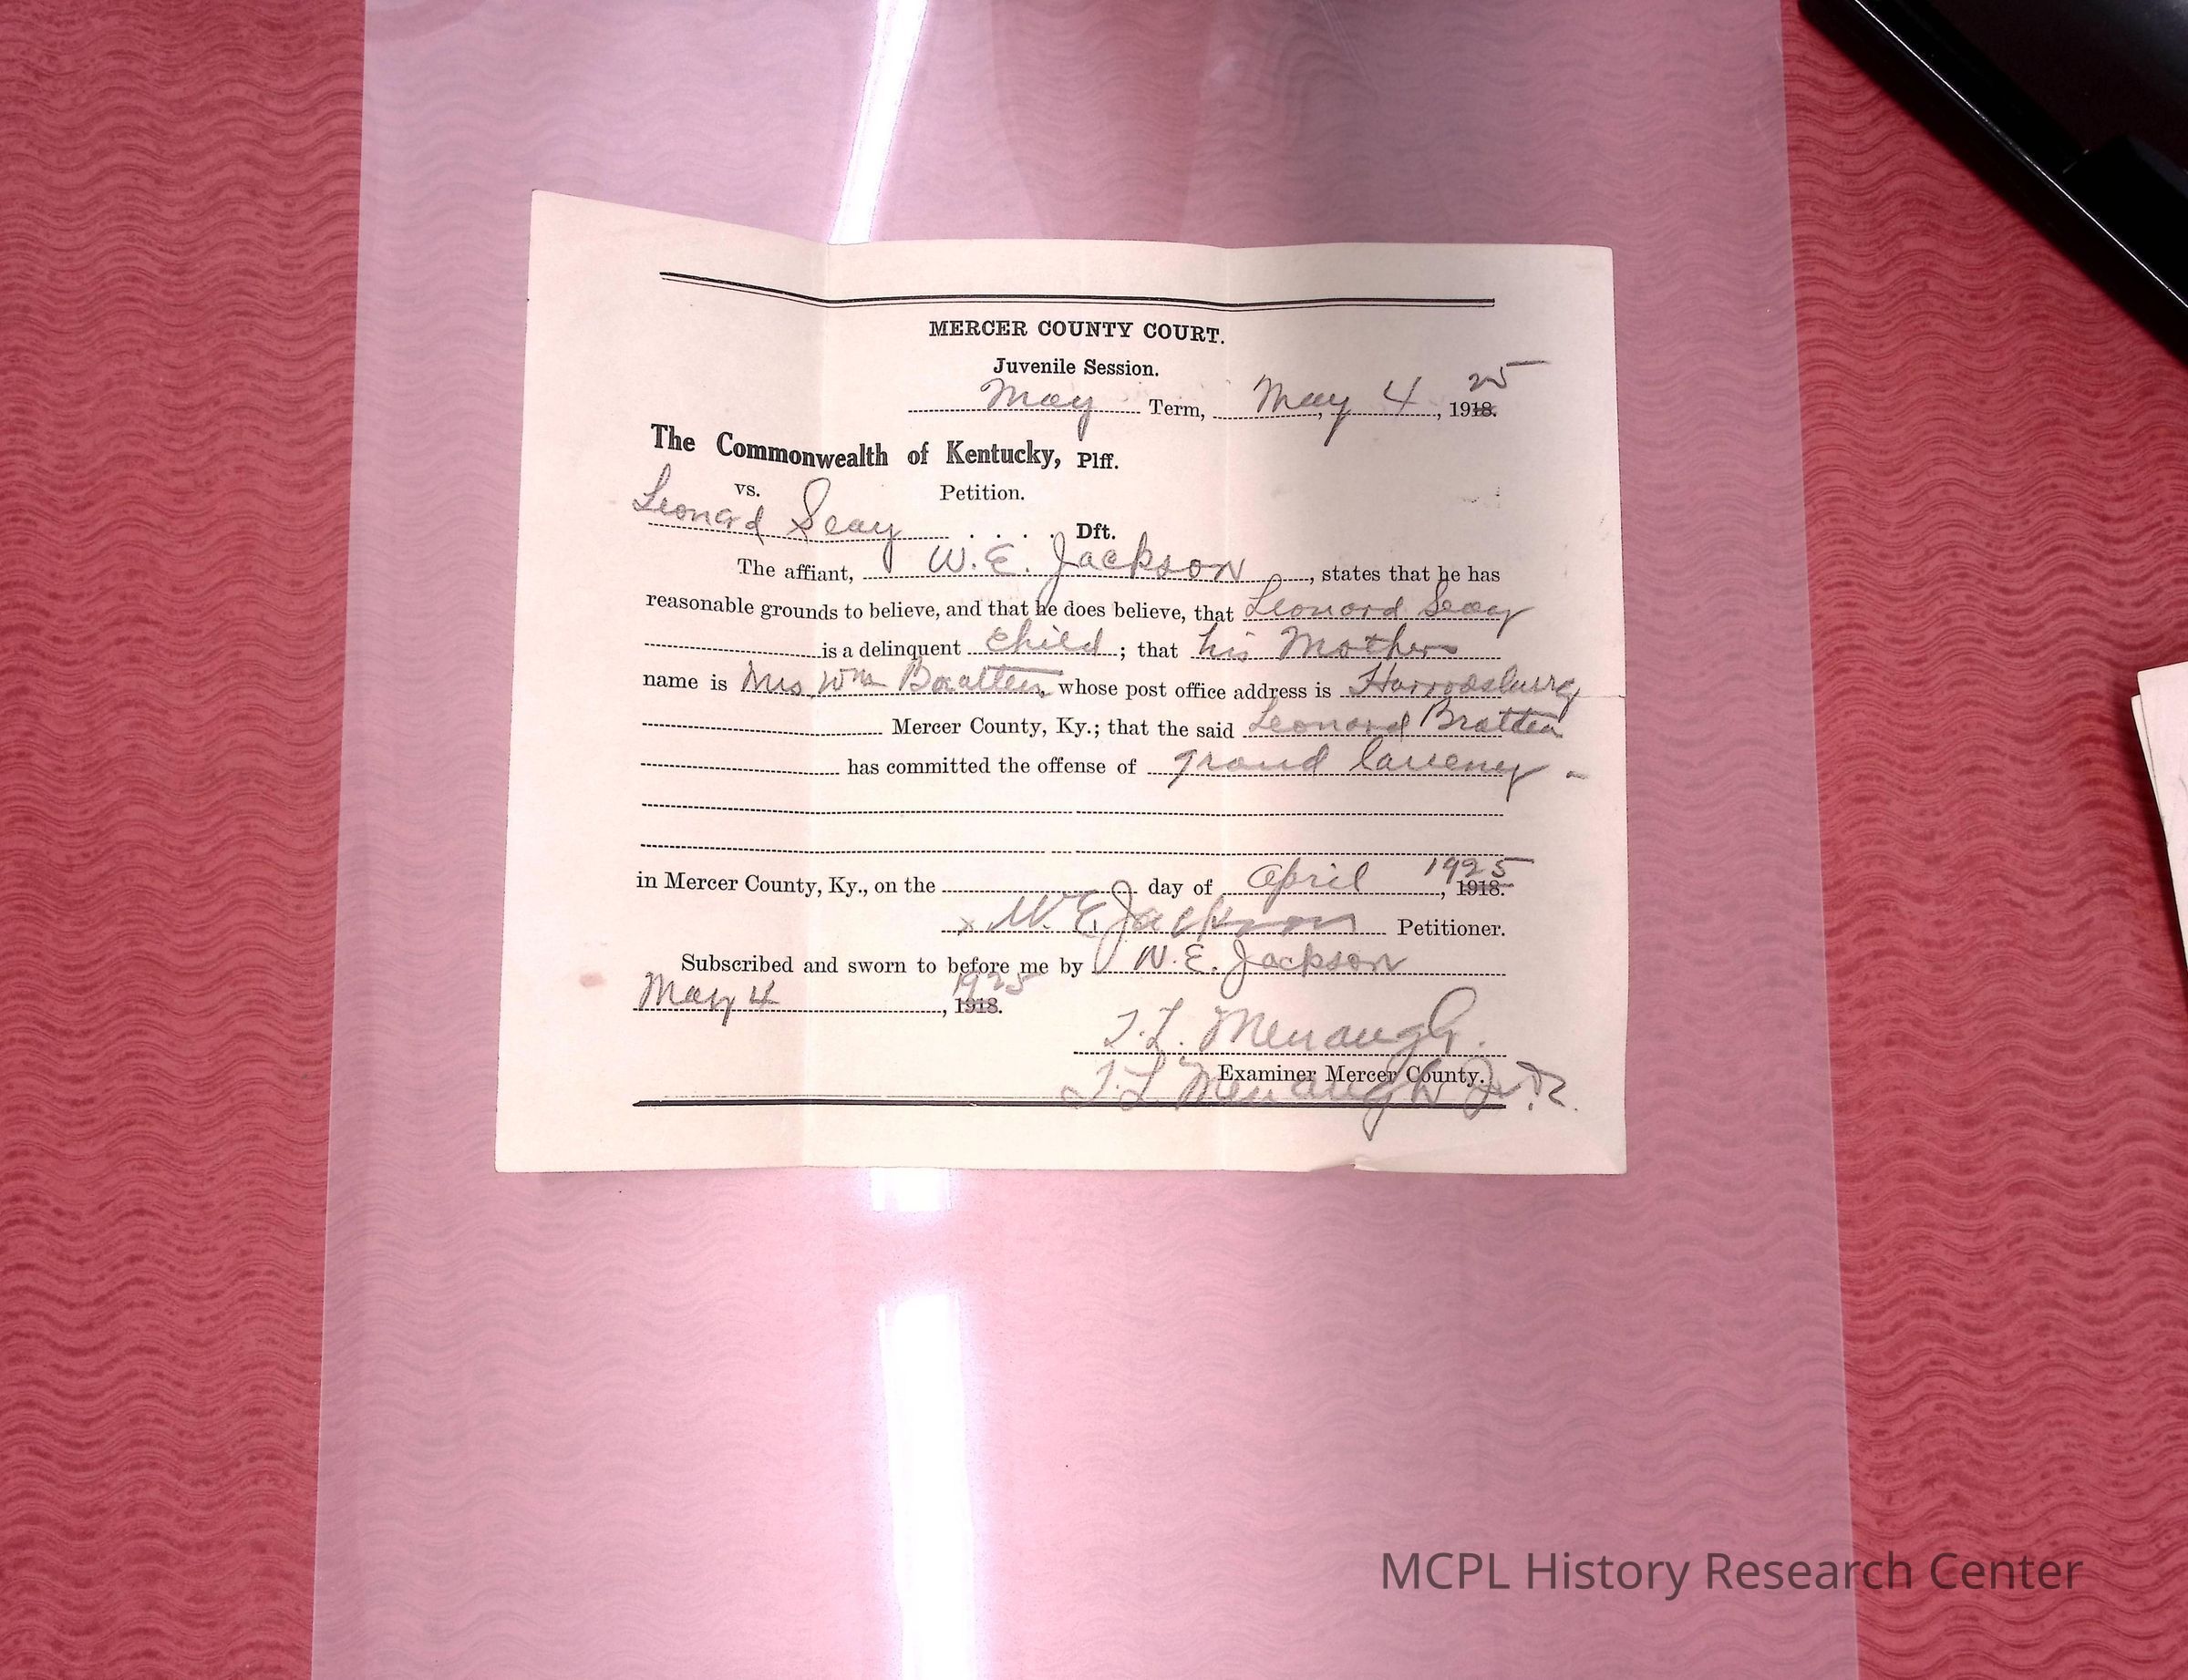 MERCER COUNTY COURT.
Juvenile Session.
May Term, May 4, 1918. 25
The Commonwealth of Kentucky, Plff.
vs. Petition.
Leonard Seay . . . . Dft.
The affiant, W. E. Jackson, states that he has
reasonable grounds to believe, and that he does believe, that Leonard Seay
is a delinquent child; that his Mothers
name is Mrs Wm Bratten, whose post office address is Harrodsburg
Mercer County, Ky.; that the said Leonard Bratten
has committed the offense of grand larceny -
in Mercer County, Ky., on the day of April 1925, 1918.
x W. E. Jackson Petitioner.
Subscribed and sworn to before me by W. E. Jackson
May 4, 1918. 1925
T. L. Menaugh.
Examiner Mercer County.
T. L. Menaugh
MCPL History Research Center